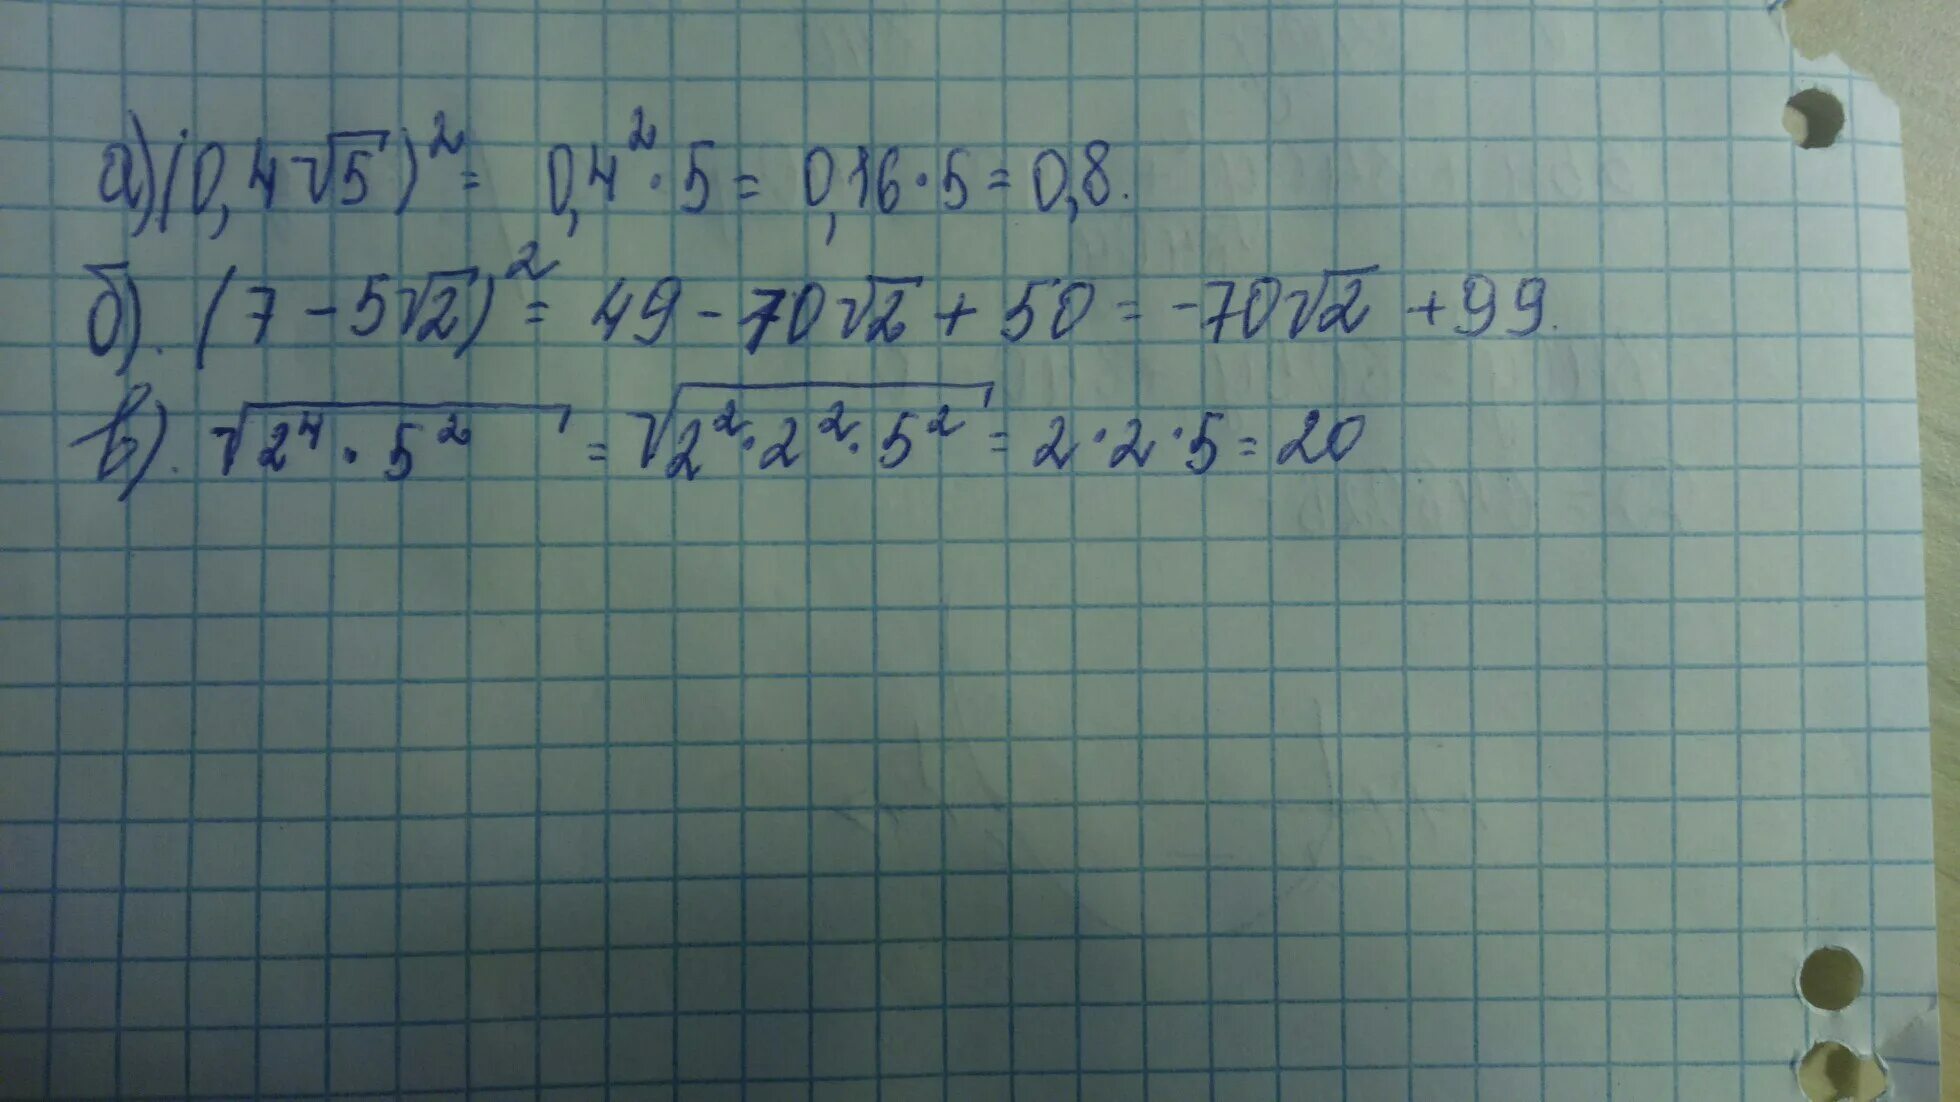 а) (0,4√5)² = 0,4² · 5 = 0,16 · 5 = 0,8.
б). (7 - 5√2)² = 49 - 70√2 + 50 = -70√2 + 99.
в). √(2⁴ · 5²) = √(2² · 2² · 5²) = 2 · 2 · 5 = 20